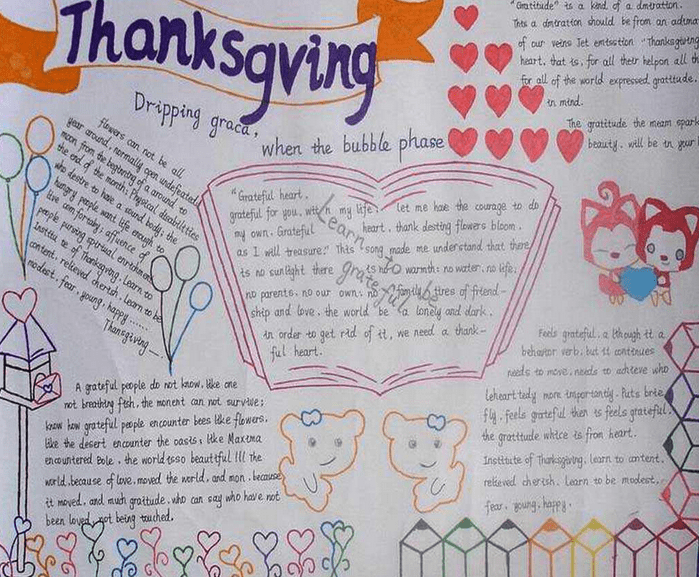 Thanksgving
Dripping graca,
when the bubble phase
"Gratitude" is a kind of a dmtration.
This a dmtration should be from an
of our veins Jet emtsstion "Thanksgiving
heart, that is, for all their helpon all th
for all of the world expressed gratitude,
in mind.
The gratitude the meam spark
beauty. will be in year
flowers can not be all
year around, normally open undefeated
moon from the beginning of a around to
the end of the month; Physical disabilities
who desire to have a sound body; the
hungry people want life enough to
live comfortably; affluence of
people pursing spiritual enrichment
Institu te of Thanksgiving, learn to
content, relieved cherish, learn to be
modest, fear, young, happy ......
Thanksgiving
"Grateful heart,
grateful for you, with n my life, let me hae the courage to do
my own. Grateful heart, thank desting flowers bloom,
as I will treasure." This song made me understand that there
is no sunlight there is no warmth; no water, no life;
no parents, no our own; no family, tires of friend-
ship and love, the world be a lonely and dark,
in order to get rid of it, we need a thank-
ful heart.
Learn to be grateful
A grateful people do not know, like one
not breathing fish, the monent can not survive;
know how grateful people encounter bees like flowers,
like the desert encounter the oasts, like Maxtma
encountered Bole, the world tsso beautiful !!! the
world, because of love, moved the world, and mon, because
it moved, and much gratitude, who can say who have not
been loved, not being touched,
Feels grateful, a lthough it a
behavior verb, but it continues
needs to move, needs to achieve who
Leheart tedly more importantly. Puts brie
fly, feels grateful then is feels grateful,
the gratitude whtce is from heart.
Institute of Thanksgiving, learn to content,
relieved cherish. Learn to be modest,
fear, young, happy.